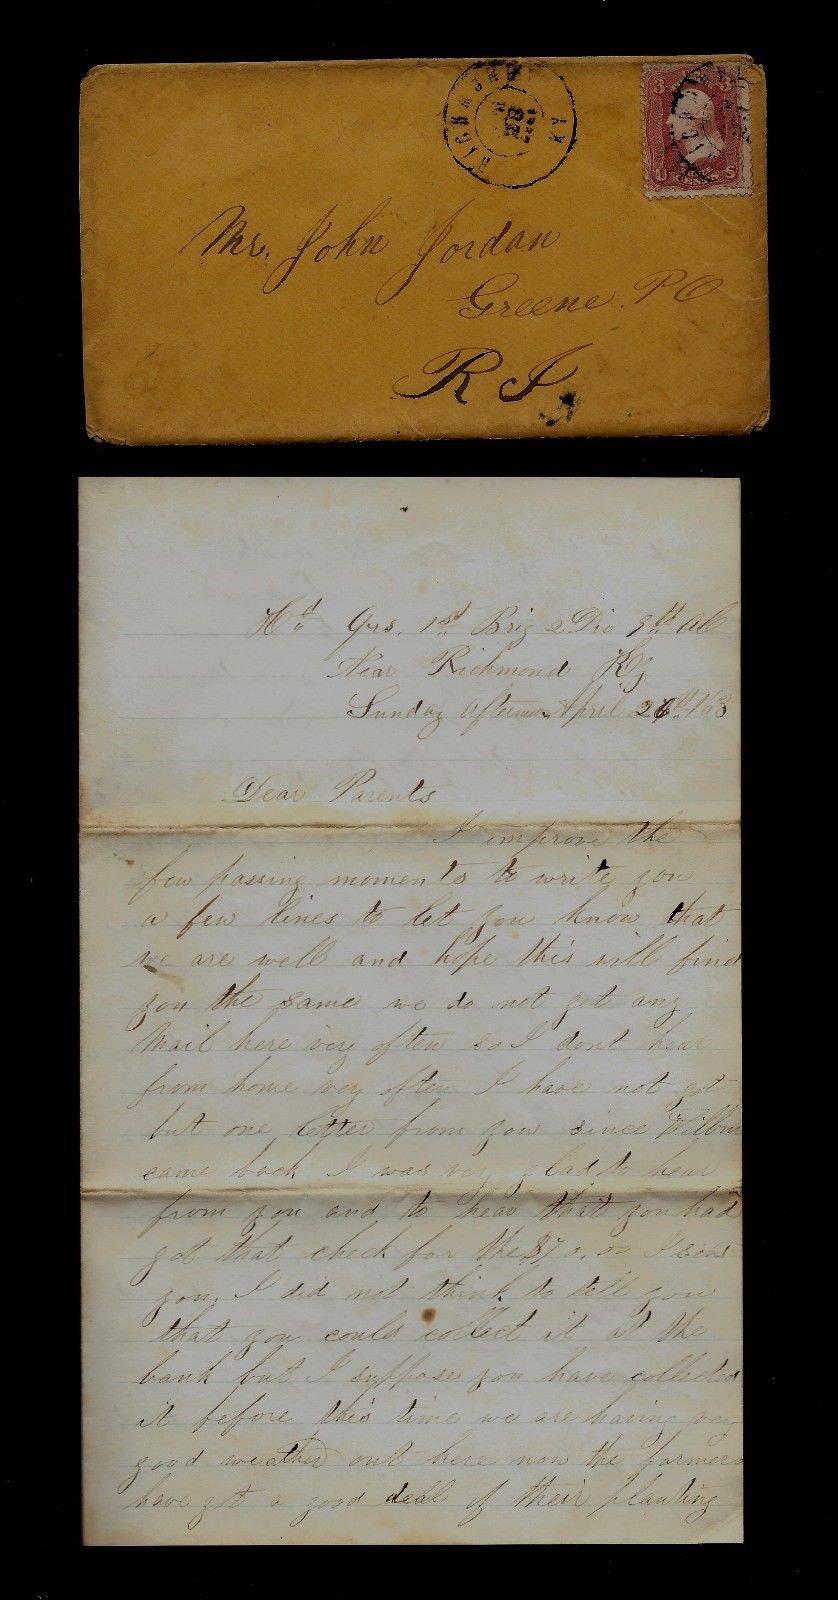 RICHMOND KY
3 3
U S
CENTS
Mr. John Jordan
Greene. P O
R I
Hd Qrs. 1st Brig 2 Div 9th AC
Near Richmond Ky
Sunday afternoon April 26th /63
Dear Parents
I improve the
few passing moments to write you
a few lines to let you know that
we are well and hope this will find
you the same we do not get any
Mail here very often so I dont hear
from home very often I have not got
but one letter from you since Wilbur
came back I was very glad to hear
from you and to hear that you had
got that check for the $70.00 I sent
you. I did not think to tell you
that you could collect it at the
bank but I suppose you have collected
it before this time we are having very
good weather out here now the farmers
have got a good deal of their planting